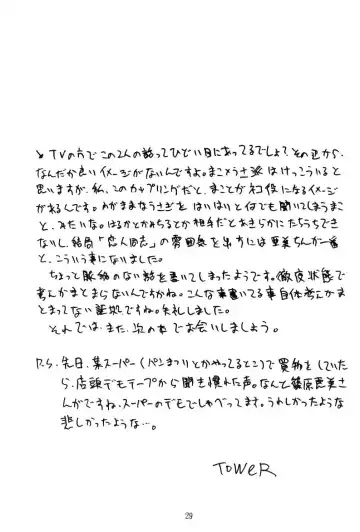 ゝTVの方でこの2人の話ってひどい目にあってるでしょ？その辺から、
なんだか良いイメージがないんですよ。まこ×うさ派はけっこういると
思いますが、私、このカップリングだと、まことがネコ役になるイメージ
があるんです。わがままなうさぎをはいはいと何でも聞いてしまうまこ
と、みたいな。はるかとかみちるとか相手だとあきらかにたちうちでき
ないし、結局「恋人同志」の雰囲気を出すには亜美ちゃんが一番
と、こういう事になりました。
ちょっと脈絡のない話を書いてしまったようです。徹夜状態で
考えがまとまらないんですかね。こんな事書いてる事自体考えがま
とまってない証拠ですね。失礼しました。
それでは、また、次の本でお会いしましょう。
P.S. 先日、某スーパー（パンまつりとかやってるとこ）で買物をしていた
ら、店頭デモテープから聞き慣れた声。なんと篠原恵美さ
んがですね、スーパーのデモでしゃべってます。うれしかったような
悲しかったような…。
TOWER
29